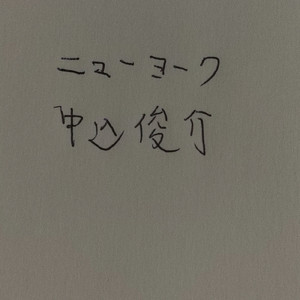 ニューヨーク
申込俊介